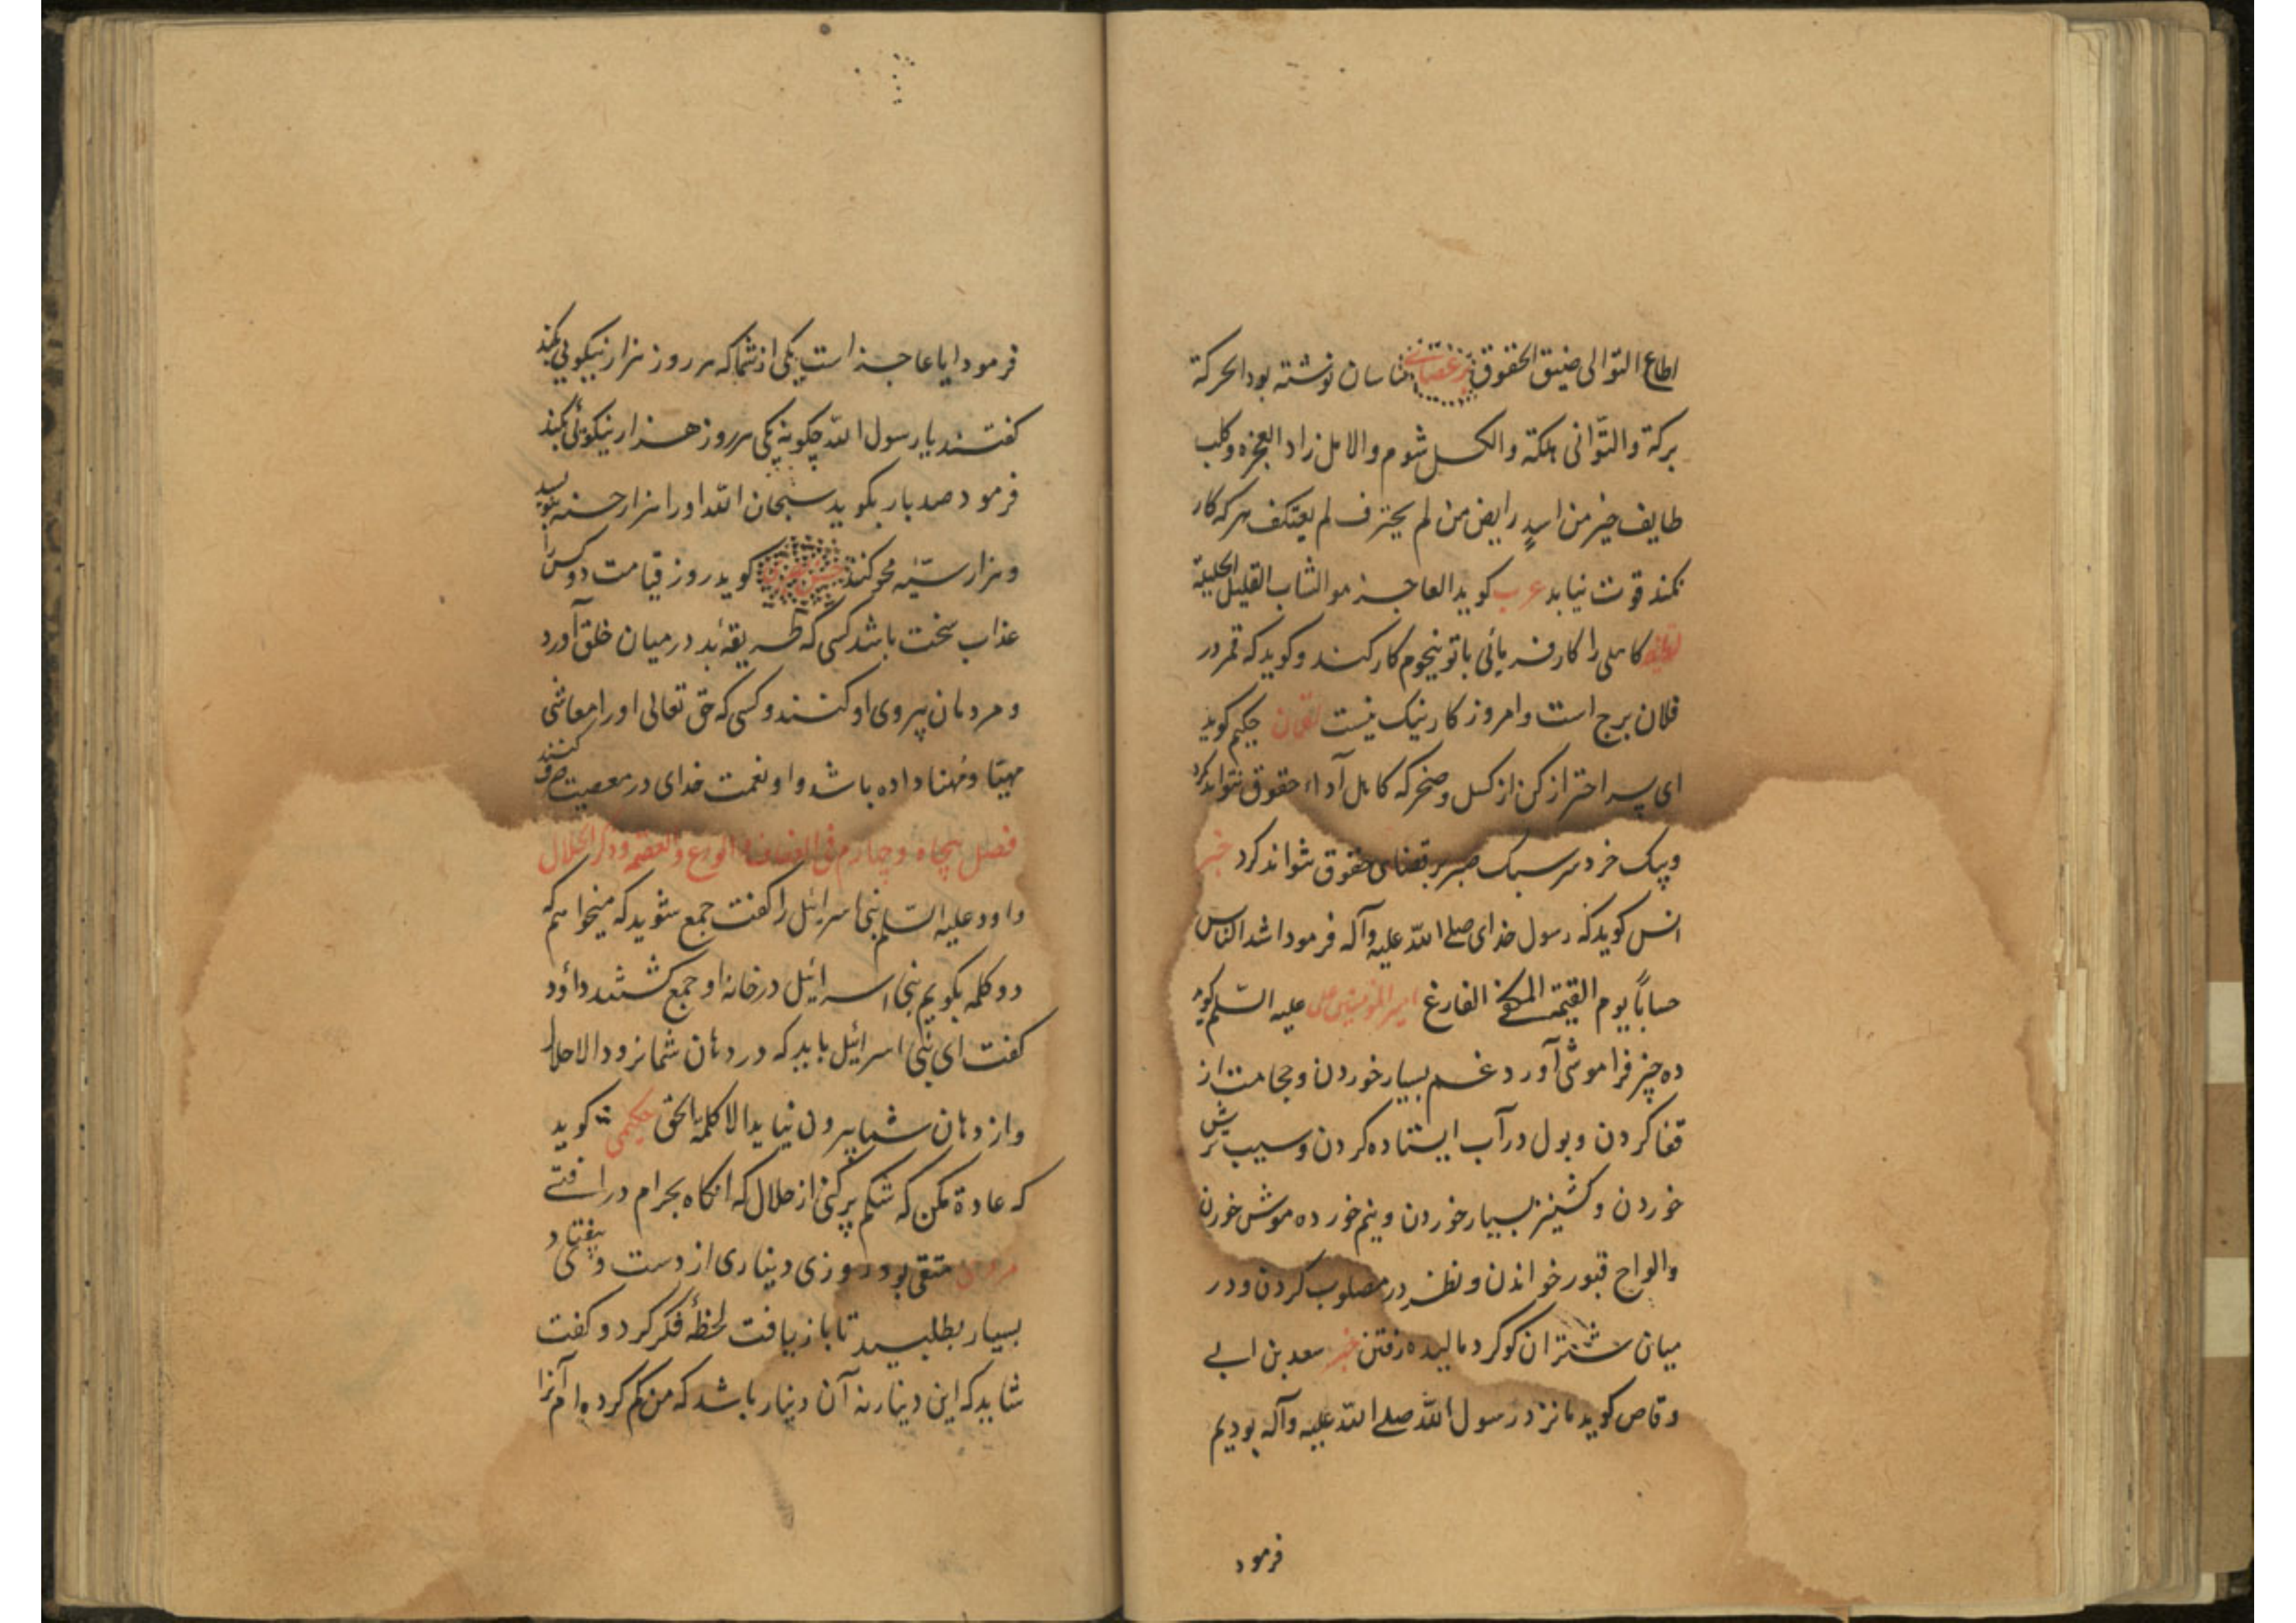 اطاع التوالی ضیق الحقوق بر عصای ساسان نوشته بود الحرکة
برکة والتوانی هلکة والکسل شوم والامل زاد العجزه وکلب
طایف خیر من اسدٍ رابض من لم یحترف لم یعتکف هرکه کار
نکند قوت نیابد عرب کوید العاجز هو الشاب القلیل الحیلة
کاهلی را کار فرمائی با تو نجوم کار کند و کوید که قمر در
فلان برج است و امروز کار نیک نیست لقمان حکیم کوید
ای پسر احتراز کن از کسل و ضجر که کاهل آداء حقوق نتواند کرد
و سبک صبر بر قضای حقوق نتواند کرد خبر
انس کوید که رسول خدای صلی الله علیه وآله فرمود اشد الناس
حساباً یوم القیمة المکفی الفارغ امیرالمومنین علی علیه السلم کوید
ده چیز فراموشی آورد غم بسیار خوردن و حجامت از
قفا کردن و بول در آب ایستاده کردن و سیب ترش
خوردن و کشنیز بسیار خوردن و نیم خورده موش خوردن
والواح قبور خواندن و نظر در مصلوب کردن و در
میان شتران رفتن خبر سعد بن ابی
وقاص کوید ما نزد رسول الله صلی الله علیه وآله بودیم
فرمود
فرمود ایا عاجز است یکی از شما که هر روز هزار نیکوئی بکند
کفتند یا رسول الله چکونه یکی هر روز هزار نیکوئی بکند
فرمود صد بار بکوید سبحان الله او را هزار حسنه بنویسد
و هزار سیّئه محو کند حسن بصری کوید روز قیامت دو کس را
عذاب سخت باشد کسی که طریقهٔ بد در میان خلق آورد
و مردمان پیروی او کنند و کسی که حق تعالی او را معاشی
مهیّا و مُهنا داده باشد و او نعمت خدای در معصیت صرف کند
فصل پنجاه و چهارم فی العفاف والورع والعصمة وذکر الحلال
داود علیه السلم بنی اسرائیل را کفت جمع شوید که میخواهم که
دو کلمه بکویم بنی اسرائیل در خانه او جمع کشتند داؤد
کفت ای بنی اسرائیل باید که در دهان شما نرود الا حلال
و از دهان شما بیرون نیاید الا کلمة الحق حکیمی کوید
که عادة مکن که شکم پر کنی از حلال که انکاه بحرام در افتی
مردی متقی بود روزی دیناری از دست وی بیفتاد
بسیار بطلبید تا باز یافت لحظهٔ فکر کرد و کفت
شاید که این دینار نه آن دینار باشد که من کم کرده ام آنرا